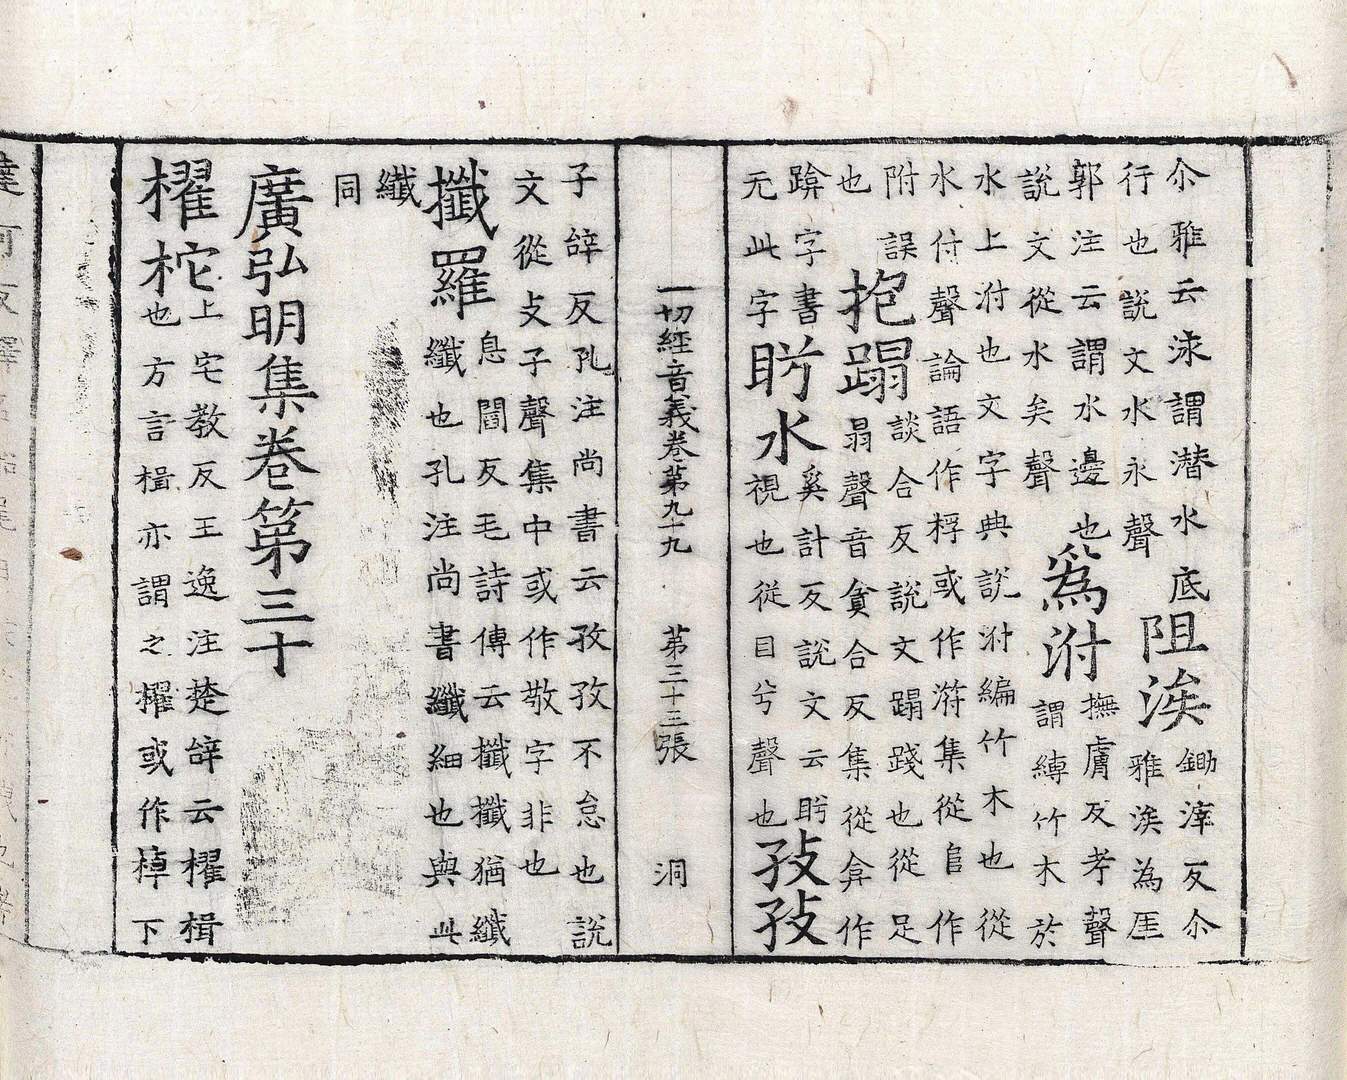 尒雅云泳謂潜水底
行也說文水永聲
阻涘
鋤滓反尒
雅涘為厓
郭注云謂水邊也
說文從水矣聲
為泭
撫膚反考聲
謂縛竹木於
水上泭也文字典說泭編竹木也從
水付聲論語作桴或作泭集從𠂤作
附誤
也
抱蹋
談合反說文蹋踐也從足
𦐇聲音貪合反集從弇作
䠡字書
无此字
盻水
奚計反說文云盻
視也從目兮聲也
孜孜
一切經音義卷第九十九 第三十三張 洞
子辝反孔注尚書云孜孜不怠也說
文從攴子聲集中或作敬字非也
攕羅
息閻反毛詩傳云攕攕猶纖
纖也孔注尚書纖細也與此
纖
同
廣弘明集卷第三十
櫂柁
上宅教反王逸注楚辝云櫂楫
也方言楫亦謂之櫂或作棹下